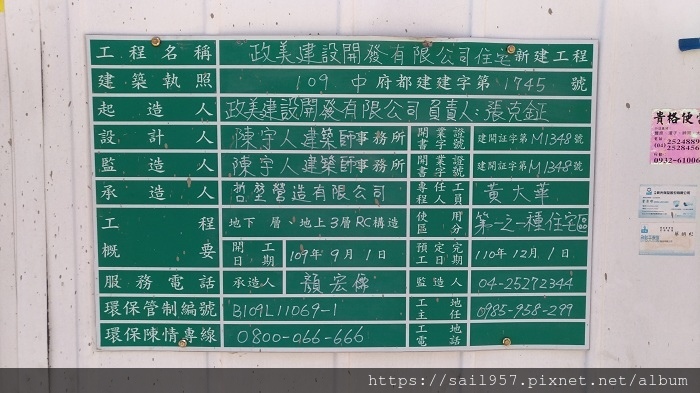 工程名稱 政美建設開發有限公司住宅新建工程
建築執照 109 中府都建建字第 1745 號
起造人 政美建設開發有限公司 負責人:張克鉦
設計人 陳宇人建築師事務所 開業證書字號 建開証字第M1348號
監造人 陳宇人建築師事務所 開業證書字號 建開証字第M1348號
承造人 哲堃營造有限公司 專任工程人員 黃大華
工程概要 地下 層、地上3層RC構造 使用分區 第一之一種住宅區
開工日期 109年9月1日 預定完工日期 110年12月1日
服務電話 承造人 顏宏儒 監造人 04-25272344
環保管制編號 B109L11069-1 工地主任 0985-958-299
環保陳情專線 0800-066-666 工地電話
貴格便宜
0932-61006
https://sail957.pixnet.net/album